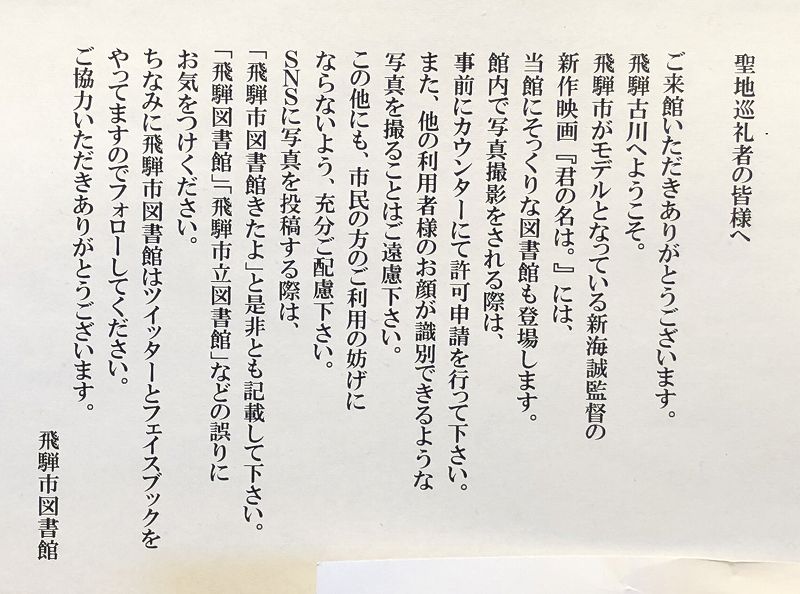 聖地巡礼者の皆様へ
ご来館いただきありがとうございます。
飛騨古川へようこそ。
飛騨市がモデルとなっている新海誠監督の
新作映画『君の名は。』には、
当館にそっくりな図書館も登場します。
館内で写真撮影をされる際は、
事前にカウンターにて許可申請を行って下さい。
また、他の利用者様のお顔が識別できるような
写真を撮ることはご遠慮下さい。
この他にも、市民の方のご利用の妨げに
ならないよう、充分ご配慮下さい。
SNSに写真を投稿する際は、
「飛騨市図書館きたよ」と是非とも記載して下さい。
「飛騨図書館」「飛騨市立図書館」などの誤りに
お気をつけください。
ちなみに飛騨市図書館はツイッターとフェイスブックを
やってますのでフォローしてください。
ご協力いただきありがとうございます。
飛騨市図書館